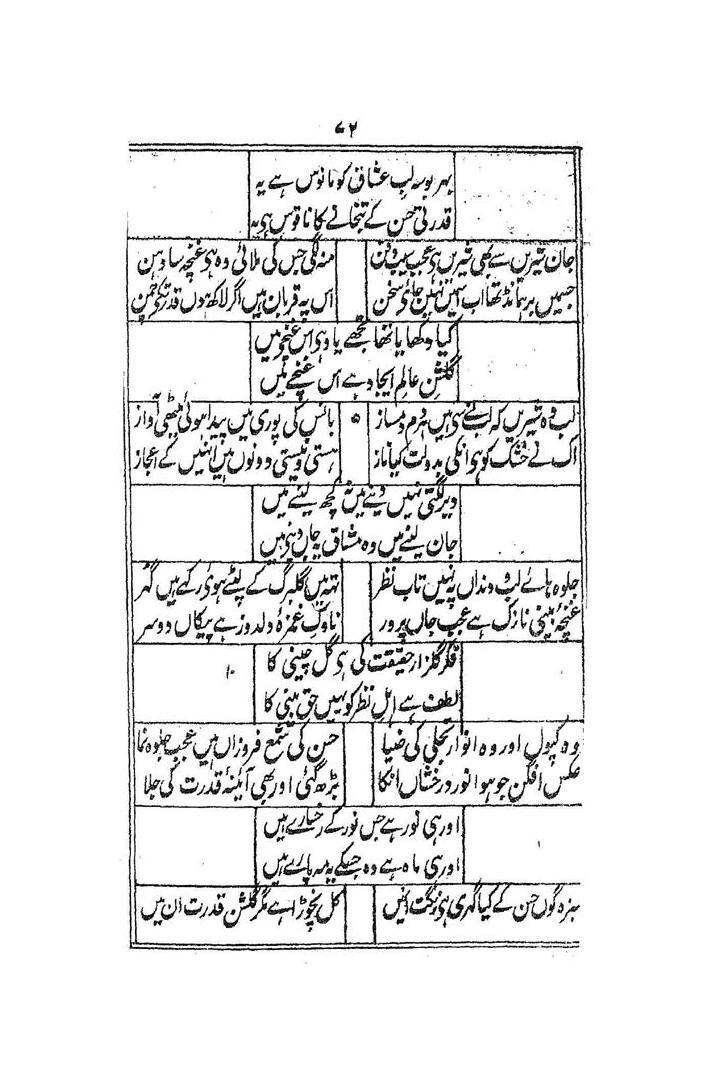 ۷۲
بہر بوسہ لب عشاق کو مانوس ہے یہ
قدرتی حسن کے بتخانے کا ناقوس ہی یہ
جان شیریں سے بھی شیریں ہی عجب سیب ذقن
منہ لگی جس کی ملائی وہ ہی غنچہ سا دہن
جسمیں برہمانڈ تھا اب اسمیں نہیں جائی سخن
اس پہ قربان ہیں اگر لاکھ ہوں قدرتکی چمن
کیا دکھایا تھا تجھے یاد ہی اس غنچہ میں
گلشن عالم ایجاد ہے اس غنچے میں
لب وہ شیریں کہ اپنے سی ہیں ہر دم دمساز
۵
بانس کی پوری میں پیدا ہوئی میٹھی آواز
اک نے خشک کو ہی انکی بدولت کیا ناز
ہستی و نیستی دونوں ہیں انہیں کے اعجاز
دیر لگتی نہیں دینے میں نہ کچھ لینے میں
جان لینے میں وہ مشاق یہ جاں دینی میں
جلوہ ہائے لب و دنداں پہ نہیں تاب نظر
تہمیں گلبرگ کے لپٹے ہوی رکہے ہیں گہر
غنچۂ بینی نازک ہے عجب جاں پرور
ناوک غمزۂ دلدوز ہے پیکاں دوسر
فکر گلزار حقیقت کی ہی گل چینی کا
۱۰
لطف ہے اہل نظر کو یہیں حق بینی کا
وہ کپول اور وہ انوار تجلی کی ضیا
حسن کی شمع فروزاں میں عجب جلوہ نما
عکس افگن جو ہوا نور درخشاں انکا
بڑھ گئی اور بھی آئینۂ قدرت کی جلا
اور ہی نور ہے جس نور کے رخسارے ہیں
اور ہی ماہ ہے وہ جسکے یہ مہ پارے ہیں
سبزہ گوں حسن کے کیا گہری ہی رنگت انمیں
گل نچوڑا ہے مگر گلشن قدرت ان میں